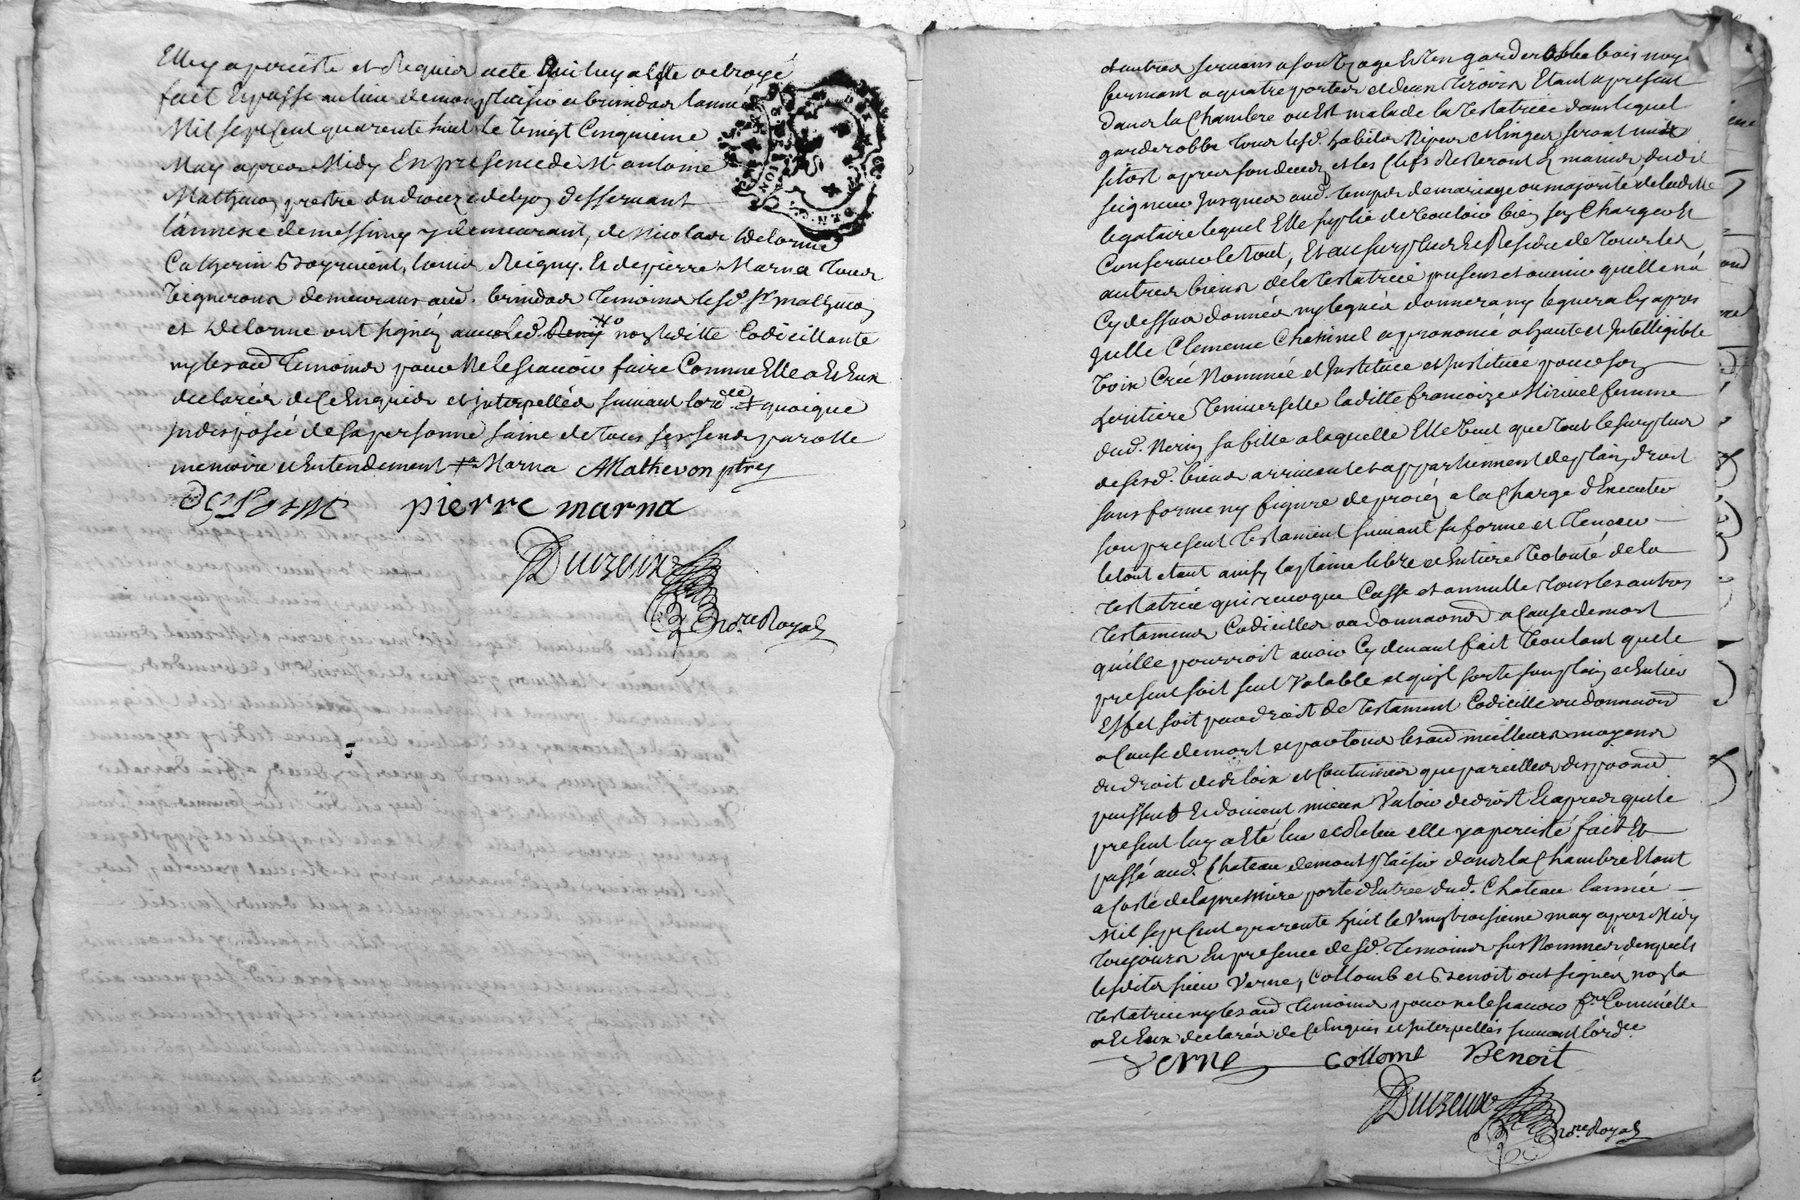 Elle y a persisté et Requis acte qui luy a été octroyé
fait et passé au lieu de monplaisir a brindas l'année
Mil sept Cent quarente huit le vingt Cinquieme
May apres Midy En presence de Mr antoine
Mathevon prestre du dioceze de lyon desservant
l'annexe de messimy y demeurant, de Nicolas Delorme
Catherin Bayment, louis Reigny. Et de pierre Marna tous
vignerons demeurans aud. brindas temoins lesd. Sr mathevon
et Delorme ont signés avec led. non laditte Codicillante
ny les aud temoins pour Ne le scavoir faire Comme Elle a Et Eux
declarés de Ce Enquis et interpellés suivant l'ord.ce quoique
jndisposée de sa personne saine de tous ses sens parolle
memoire et Entendement Marna AMathevon ptre
DeLorme pierre marna
Duizeux
No.re Royal
et autres servans a son uzage Et Un garderobbe bois noye
fermant a quatre portes et deux tiroirs Etant a present
dans la Chambre ou Est malade la testatrice dans lequel
garderobbe tous lesd. habits Nipes et linges seront mis
sitost apres son deces et les Clefs Resteront es mains dudit
seigneur jusques aud. temps de mariage ou majorité de laditte
legataire lequel Elle suplie de vouloir bien sen Charger Et
Conserver le tout, Et au surplus Et Residu de tous les
autres biens de la testatrice presens et avenir quelle n'a
Cy dessus donnés ny legues donnera ny leguera Cy apres
jcelle Clemence Chasinel a prononcé a haute et Intelligible
voix Créé Nommée et Institue et Institue pour son
heritiere universelle laditte francoize Miruel femme
dud. Nerin sa fille a laquelle Elle veut que tout le surplus
de sesd. biens arrivent et appartiennent de plain droit
sans forme ny figure de procés a la Charge d'Executer
son present testament suivant sa forme et teneur
le tout etant ainsy la plaine libre et Entiere volonté de la
testatrice qui revoque Casse et annulle tous les autres
testamens Codicilles ou donnaons a Cause de mort
qu'elle pourroit avoir Cy devant fait voulant que le
present soit seul Valable et qu'il sorte son plain et Entier
Effet soit par droit de testament Codicille ou donnaon
a Cause de mort et par tous les aud meilleurs moyens
du droit et de loix et Coutumes que par icelles dispoons
puissent Et doivent mieux Valoir de droit Et apres que le
present luy a Eté lue et Relue elle y a persisté fait Et
passé aud. Chateau de mont plaisir dans la Chambre Etant
a Costé de la premiere porte d'Entrée dud. Chateau l'année
Mil sept Cent quarente huit le Vingt troisieme may apres Midy
toujours En presence desd. temoins sus Nommés desquels
lesdits sieur Verne, Collomb et Benoit ont signés non la
testatrice ny les aud temoins pour ne le scavoir f.re Comme elle
a Et Eux declarés de Ce Enquis et interpellés suivant l'ord.ce
Verne Collomt Benoit
Duizeux
No.re Royal